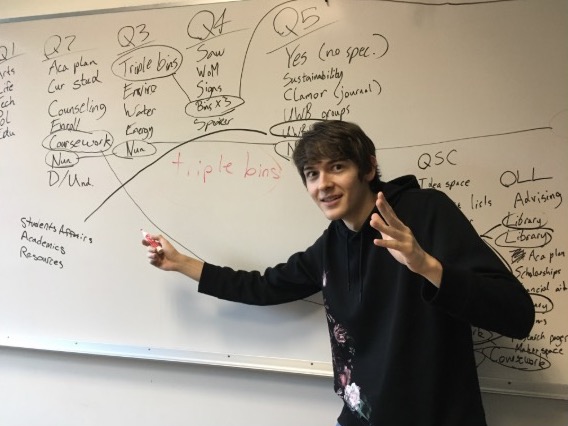 Q1
Life
Edu
Q2
Aca plan
Cur stud
Counseling
Enroll
Coursework
Nun
D/Und
Q3
Triple bins
Enviro
Water
Energy
Nun
Q4
Saw
WoM
Signs
Bins x3
Speaker
Q5
Yes (no spec.)
Sustainability
Clamor (journal)
UWB groups
triple bins
Students Affairs
Academics
Resources
QSC
Idea space
QLL
Advising
Library
Library
Aca plan
Scholarships
Makerspace
Coursework